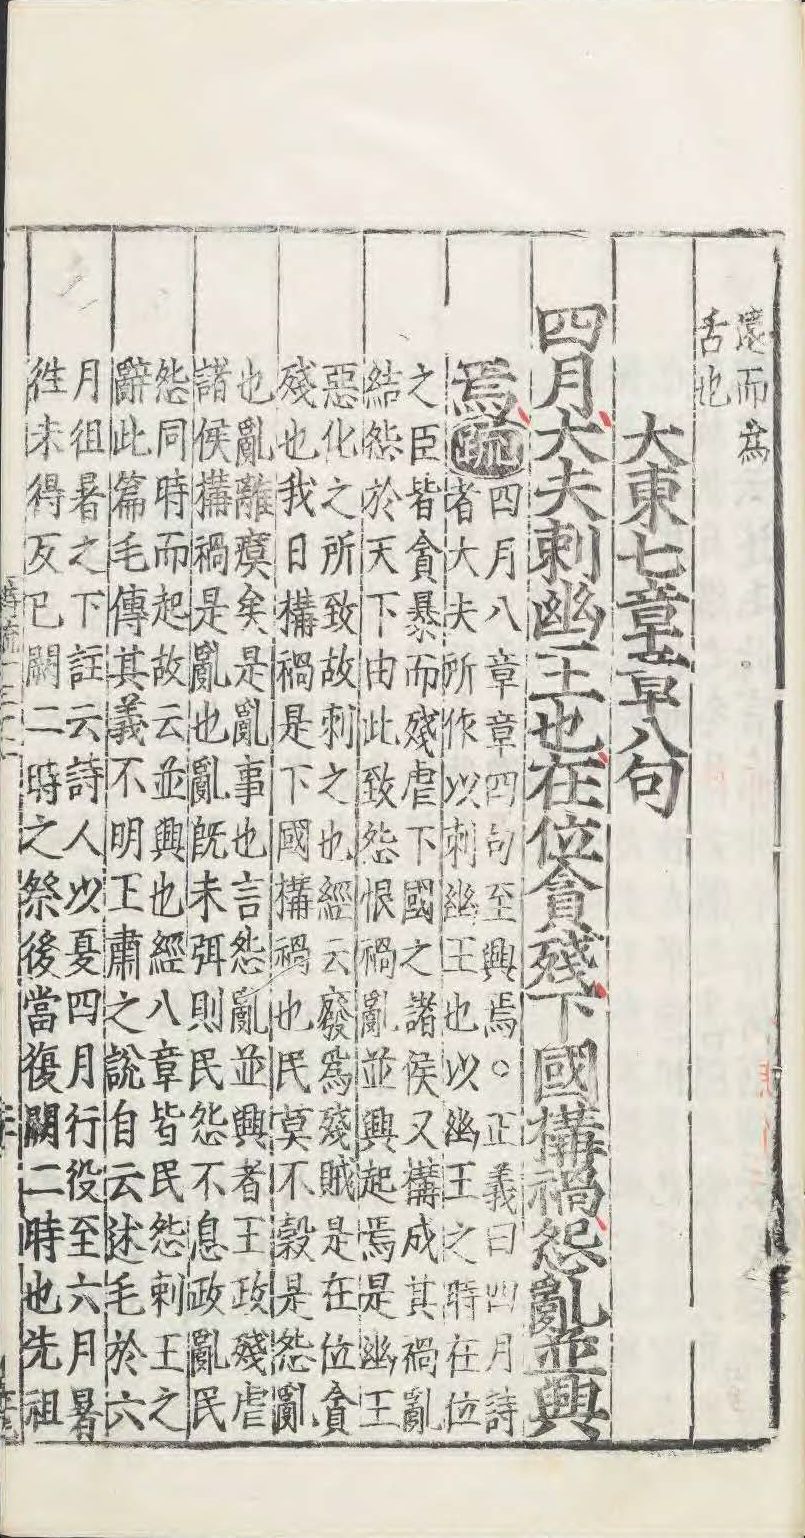 遠而為
舌也
大東七章章八句
四月大夫刺幽王也在位貪殘下國構禍怨亂並興
焉疏
四月八章章四句至興焉○正義曰四月詩
者大夫所作以刺幽王也以幽王之時在位
之臣皆貪暴而殘虐下國之諸侯又構成其禍亂
結怨於天下由此致怨恨禍亂並興起焉是幽王
惡化之所致故刺之也經云廢為殘賊是在位貪
殘也我日構禍是下國構禍也民莫不穀是怨亂
也亂離瘼矣是亂事也言怨亂並興者王政殘虐
諸侯構禍是亂也亂既未弭則民怨不息政亂民
怨同時而起故云並興也經八章皆民怨刺王之
辭此篇毛傳其義不明王肅之說自云述毛於六
月徂暑之下註云詩人以夏四月行役至六月暑
徃未得反已闕二時之祭後當復闕二時也先祖